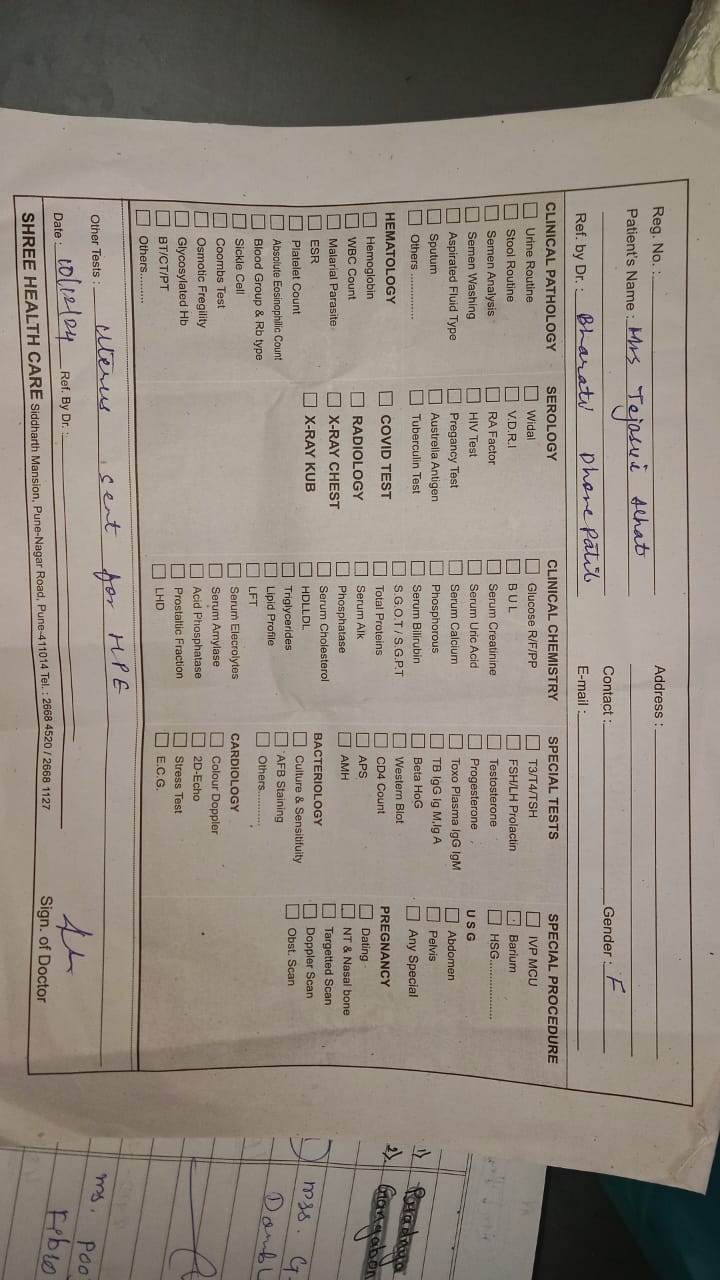 Reg. No. :
Address :
Patient's Name : Mrs Tejasvi Alhat
Contact :
Gender : F
Ref. by Dr. : Bharati Dhorepatil
E-mail :
CLINICAL PATHOLOGY
Urine Routine
Stool Routine
Semen Analysis
Semen Washing
Aspirated Fluid Type
Sputum
Others .............
HEMATOLOGY
Hemoglobin
WBC Count
Malarial Parasite
ESR
Platelet Count
Absolute Eosinophilic Count
Blood Group & Rb type
Sickle Cell
Coombs Test
Osmotic Fregility
Glycosylated Hb
BT/CT/PT
Others.........
SEROLOGY
Widal
V.D.R.I
RA Factor
HIV Test
Pregancy Test
Austrella Antigen
Tuberculin Test
COVID TEST
RADIOLOGY
X-RAY CHEST
X-RAY KUB
CLINICAL CHEMISTRY
Glucose R/F/PP
B U L
Serum Creatinine
Serum Uric Acid
Serum Calcium
Phosphorous
Serum Bilirubin
S.G.O.T / S.G.P.T
Total Proteins
Serum Alk
Phosphatase
Serum Cholesterol
HDLLDL
Triglycerides
Lipid Profile
LFT
Serum Elecrolytes
Serum Amylase
Acid Phosphatase
Prostaltic Fraction
LHD
SPECIAL TESTS
T3/T4/TSH
FSH/LH Prolactin
Testosterone
Progesterone
Toxo Plasma IgG IgM
TB IgG Ig M,Ig A
Beta HoG
Western Blot
CD4 Count
APS
AMH
BACTERIOLOGY
Culture & Sensitifuity
AFB Staining
Others..........
CARDIOLOGY
Colour Doppler
2D-Echo
Stress Test
E.C.G.
SPECIAL PROCEDURE
IVP MCU
Barium
HSG................
U S G
Abdomen
Pelvis
Any Special
PREGNANCY
Dating
NT & Nasal bone
Targetted Scan
Doppler Scan
Obst. Scan
Other Tests : uterus sent for HPE
Date : 10/12/24 Ref. By Dr. :
Sign. of Doctor
SHREE HEALTH CARE Siddharth Mansion, Pune-Nagar Road, Pune-411014 Tel. : 2668 4520 / 2668 1127
1)
2)
Mss. G.
ms. Poo